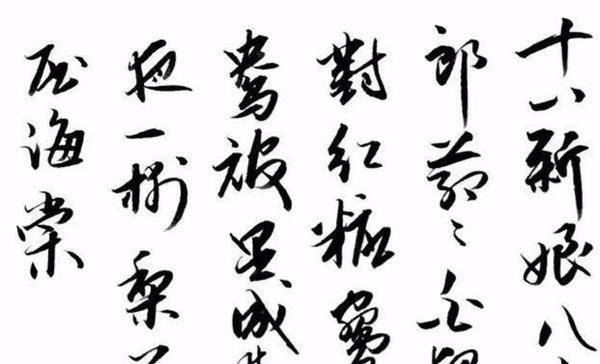 十八新娘八
郎蒼々白
對紅糚鴛
鴦被里成
夜一樹梨
压海棠